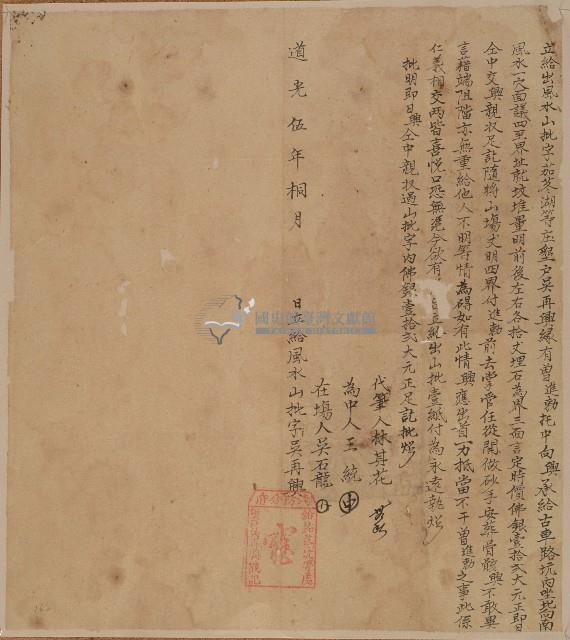 立給出風水山批字茄苳湖等庄墾戶吳再興緣有曾進勳托中向興承給古車路坑內坐北向南
風水一穴面議四至界址就坟堆量明前後左右各拾丈埋石為界三面言定時價佛銀壹拾弍大元正即日
仝中交興親收足訖隨將山塲丈明四界付進勳前去掌管任從開做砂手安葬骨骸興不敢異
言藉端阻擋亦無重給他人不明等情為碍如有此情興應出首一力抵當不干曾進勳之事此係
仁義相交两皆喜悅口恐無憑今欲有 立給出山批壹紙付為永遠執炤
批明即日興仝中親收過山批字內佛銀壹拾弍大元正足訖批炤
代筆人林其花
為中人王統
在塲人吳石龍
道光伍年桐月 日立給風水山批字吳再興
國史館臺灣文獻館
TAIWAN HISTORICA